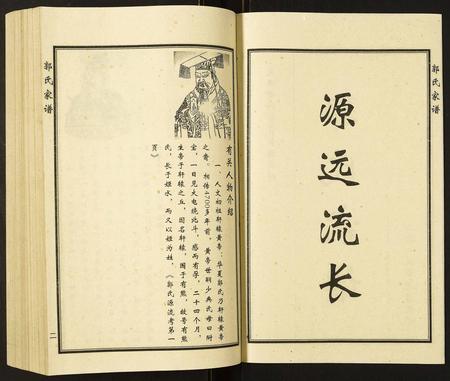 郭氏家谱
源远流长
有关人物介绍
一、人文初祖轩辕黄帝：华夏郭氏乃轩辕黄帝
之裔。相传4700多年前，黄帝世嗣少典氏母曰附
宝，一日见大电绕北斗，感而有孕，二十四个月，
生帝于轩辕之丘，因名轩辕，国于有熊，故号有熊
氏，长于姬水，而又以姬为姓，《郭氏源流考第一
页》
郭氏家谱
二